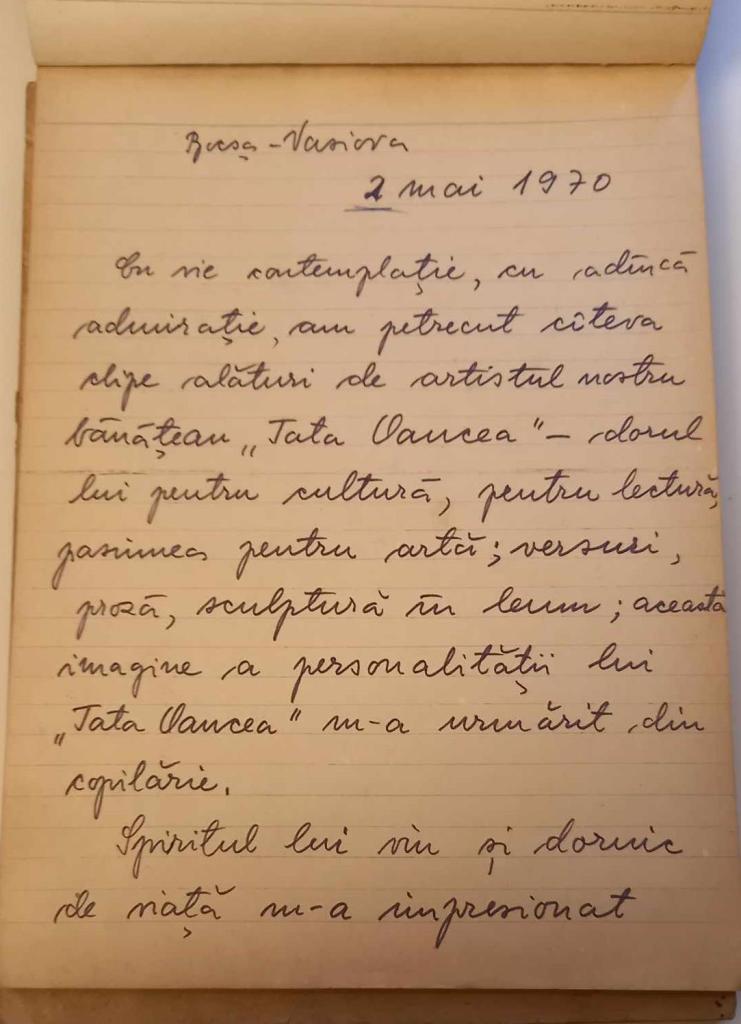 Bocșa-Vasiova
2 mai 1970
Cu vie contemplație, cu adîncă
admirație, am petrecut cîteva
clipe alături de artistul nostru
bănățean „Tata Oancea" – dorul
lui pentru cultură, pentru lectură,
pasiunea pentru artă; versuri,
proză, sculptură în lemn; această
imagine a personalității lui
„Tata Oancea" m-a urmărit din
copilărie.
Spiritul lui viu și dornic
de viață m-a impresionat